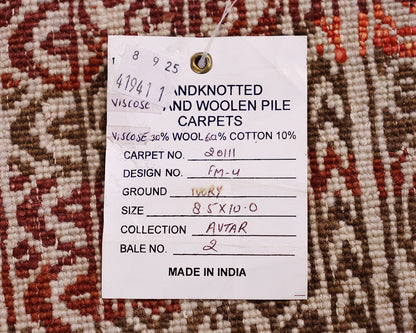 8 9 25
41941 1
VISCOSE
ANDKNOTTED
AND WOOLEN PILE
CARPETS
VISCOSE 30% WOOL 60% COTTON 10%
CARPET NO. 20111
DESIGN NO. FM-4
GROUND IVORY
SIZE 8.5X10.0
COLLECTION AVTAR
BALE NO. 2
MADE IN INDIA